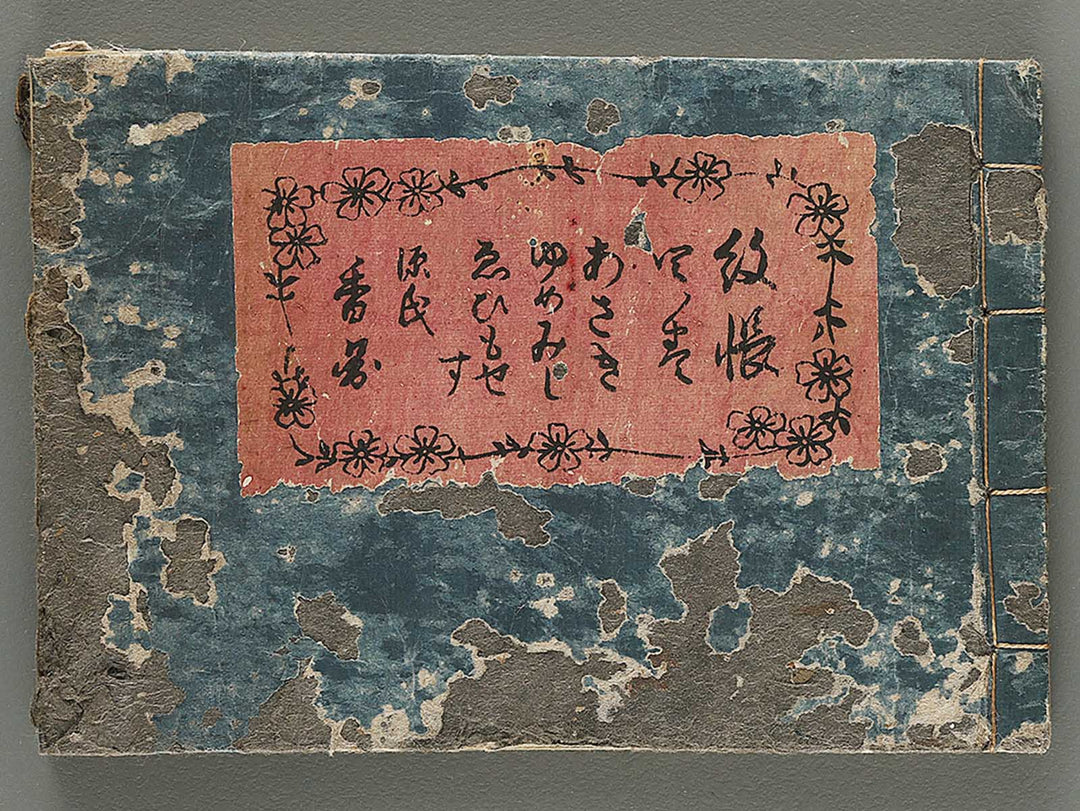 紋帳
四ノ巻
あさき
ゆめみし
ゑひもせ
す
源氏
香図